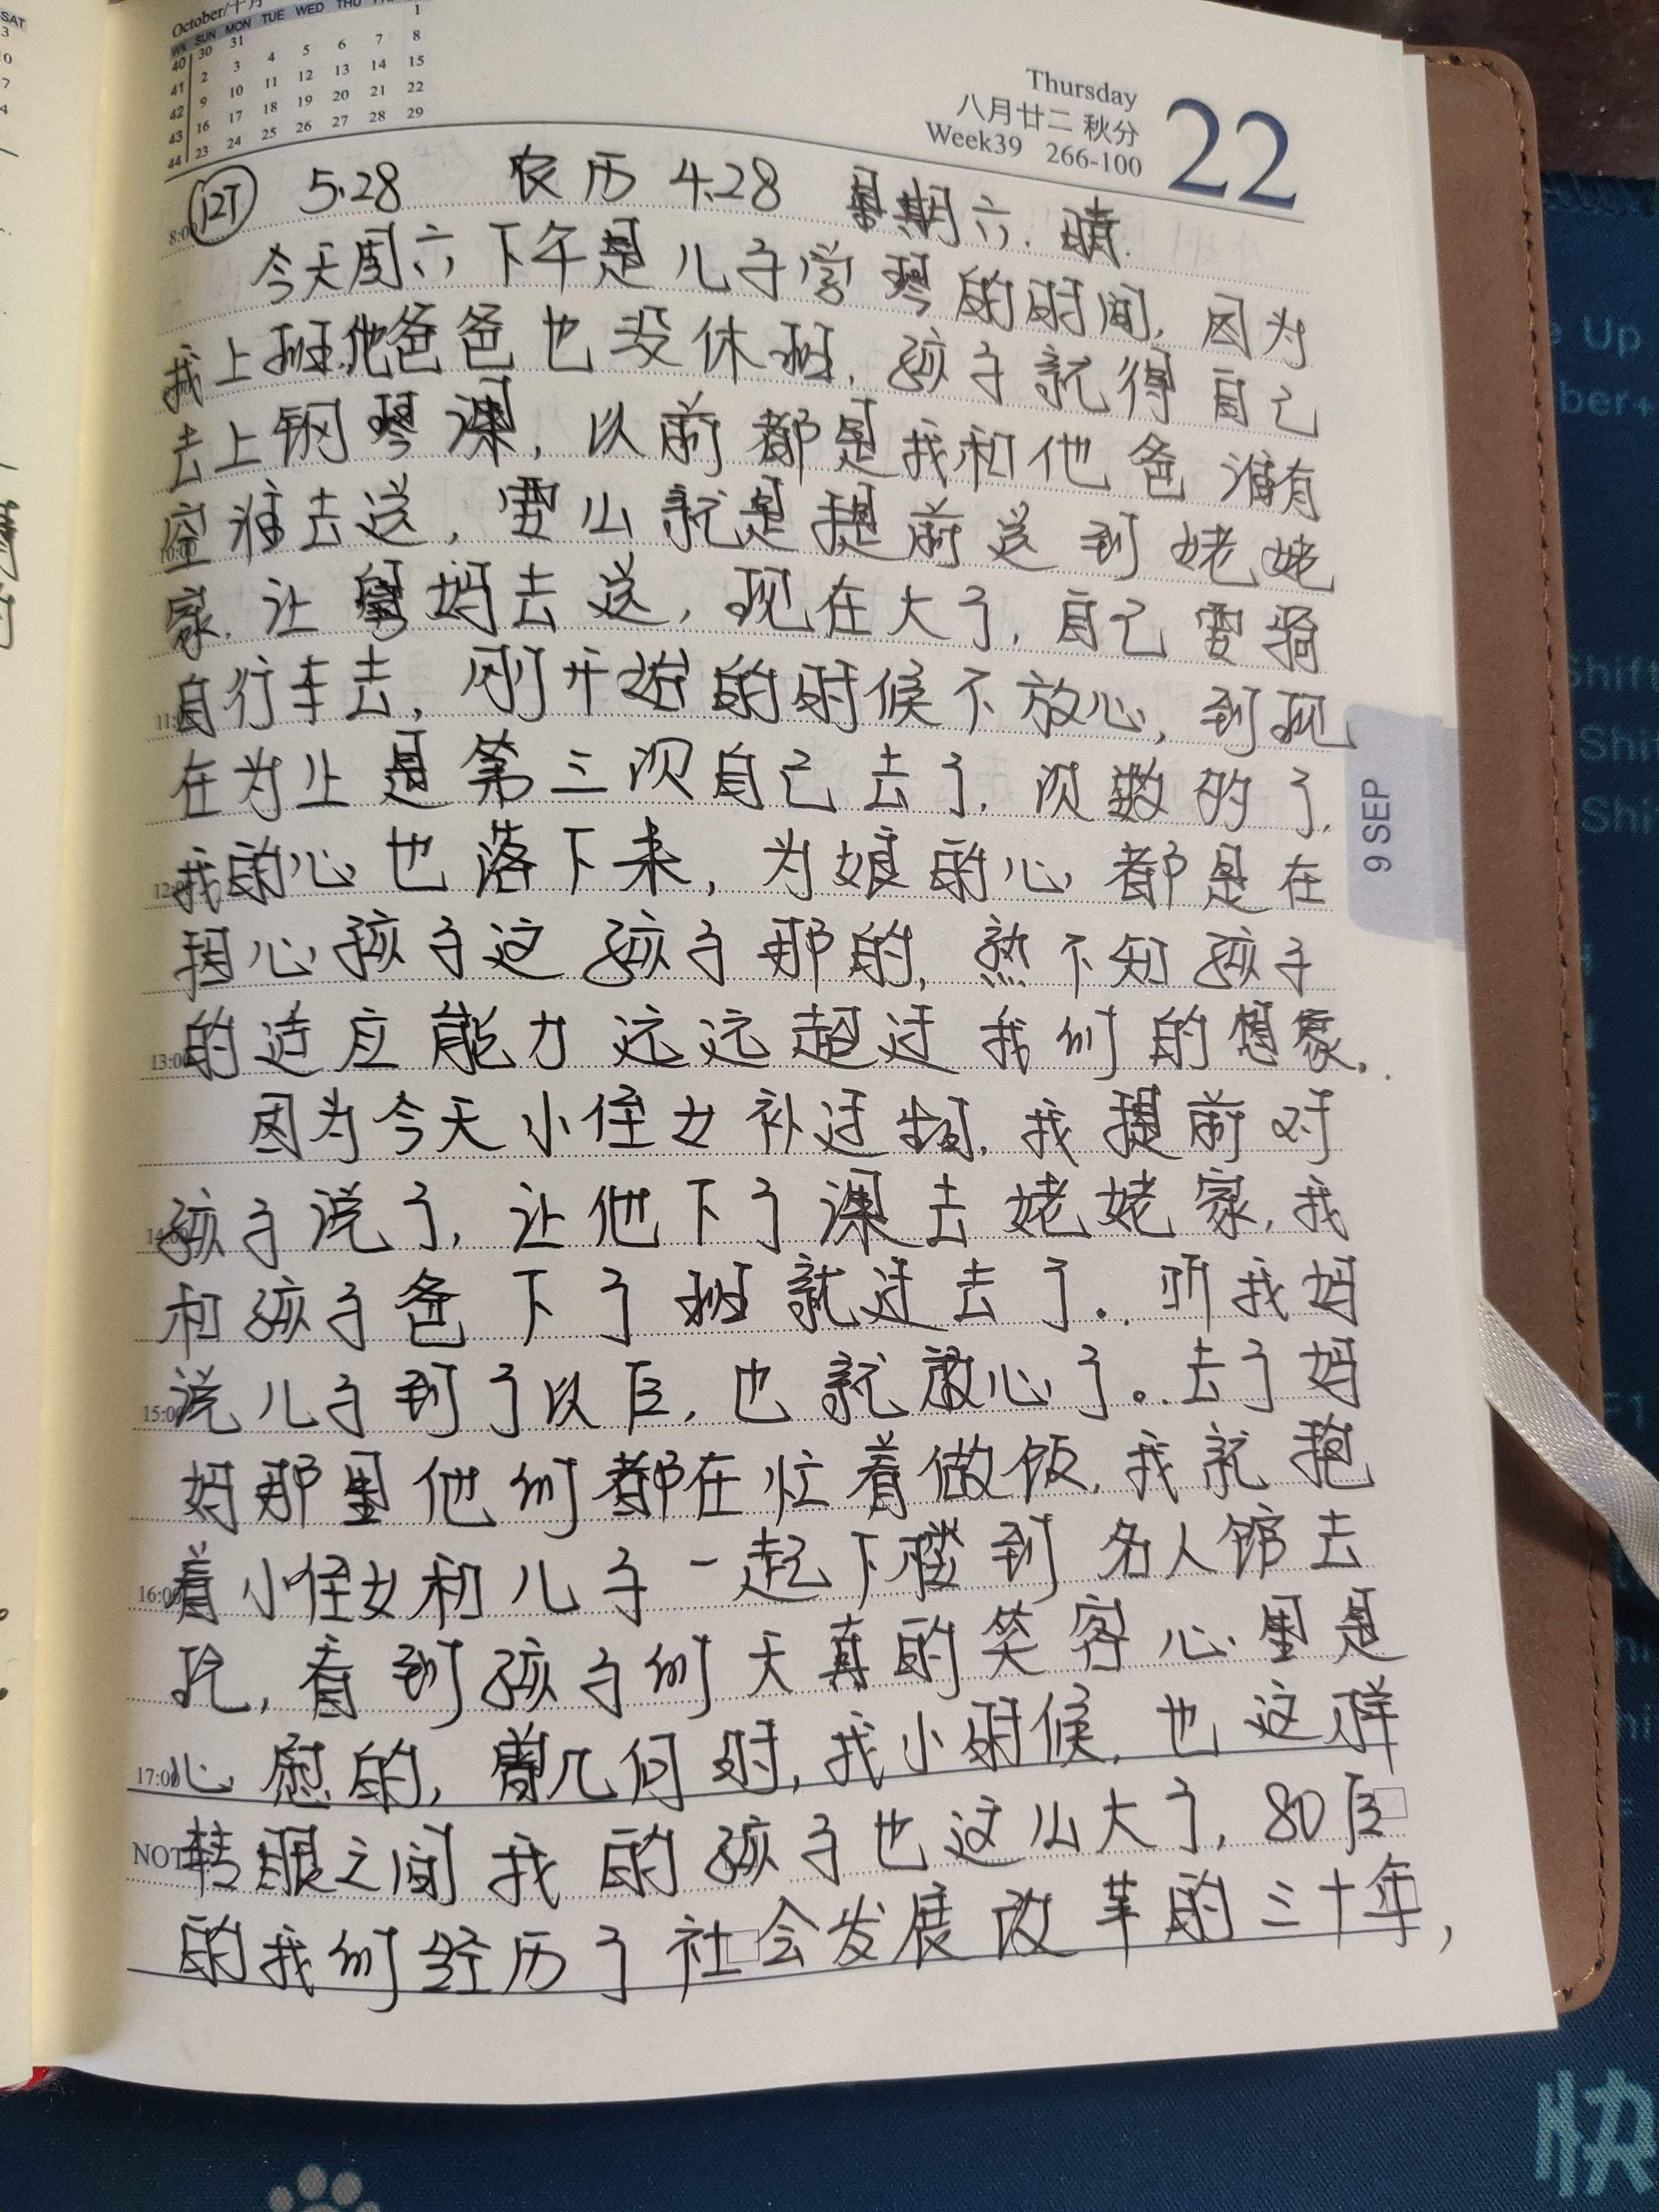 October/十月
WK SUN MON TUE WED THU
40 30 31 1
41 2 3 4 5 6 7 8
42 9 10 11 12 13 14 15
43 16 17 18 19 20 21 22
44 23 24 25 26 27 28 29
Thursday
八月廿二 秋分
Week39 266-100
22
121 5.28 农历 4.28 星期六. 晴.
今天周六下午是儿子学琴的时间, 因为
我上班,他爸爸也没休班, 孩子就得自己
去上钢琴课, 以前都是我和他爸谁有
空谁去送, 要么就是提前送到姥姥
家, 让舅妈去送, 现在大了, 自己要骑
自行车去, 刚开始的时候不放心, 到现
在为止是第三次自己去了, 次数的了,
我的心也落下来, 为娘的心都是在
担心孩子这孩子那的, 熟不知孩子
的适应能力远远超过我们的想象.
因为今天小侄女补过生日, 我提前对
孩子说了, 让他下了课去姥姥家, 我
和孩子爸下了班就过去了. 听我妈
说儿子到了以后, 也就放心了。去了妈
妈那里他们都在忙着做饭, 我就抱
着小侄女和儿子一起下楼到名人馆去
玩, 看到孩子们天真的笑容心里是
心慰的, 曾几何时, 我小时候, 也这样
转眼之间我的孩子也这么大了, 80后
的我们经历了社会发展改革的三十年,
8:00
10:00
11:00
12:00
13:00
14:00
15:00
16:00
17:00
NOT
9 SEP
SAT
Up
ber+
Shift
Shi
Shi
F1
快